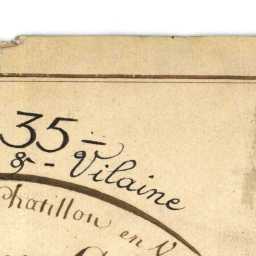 35-
&- Vilaine
Chatillon en V